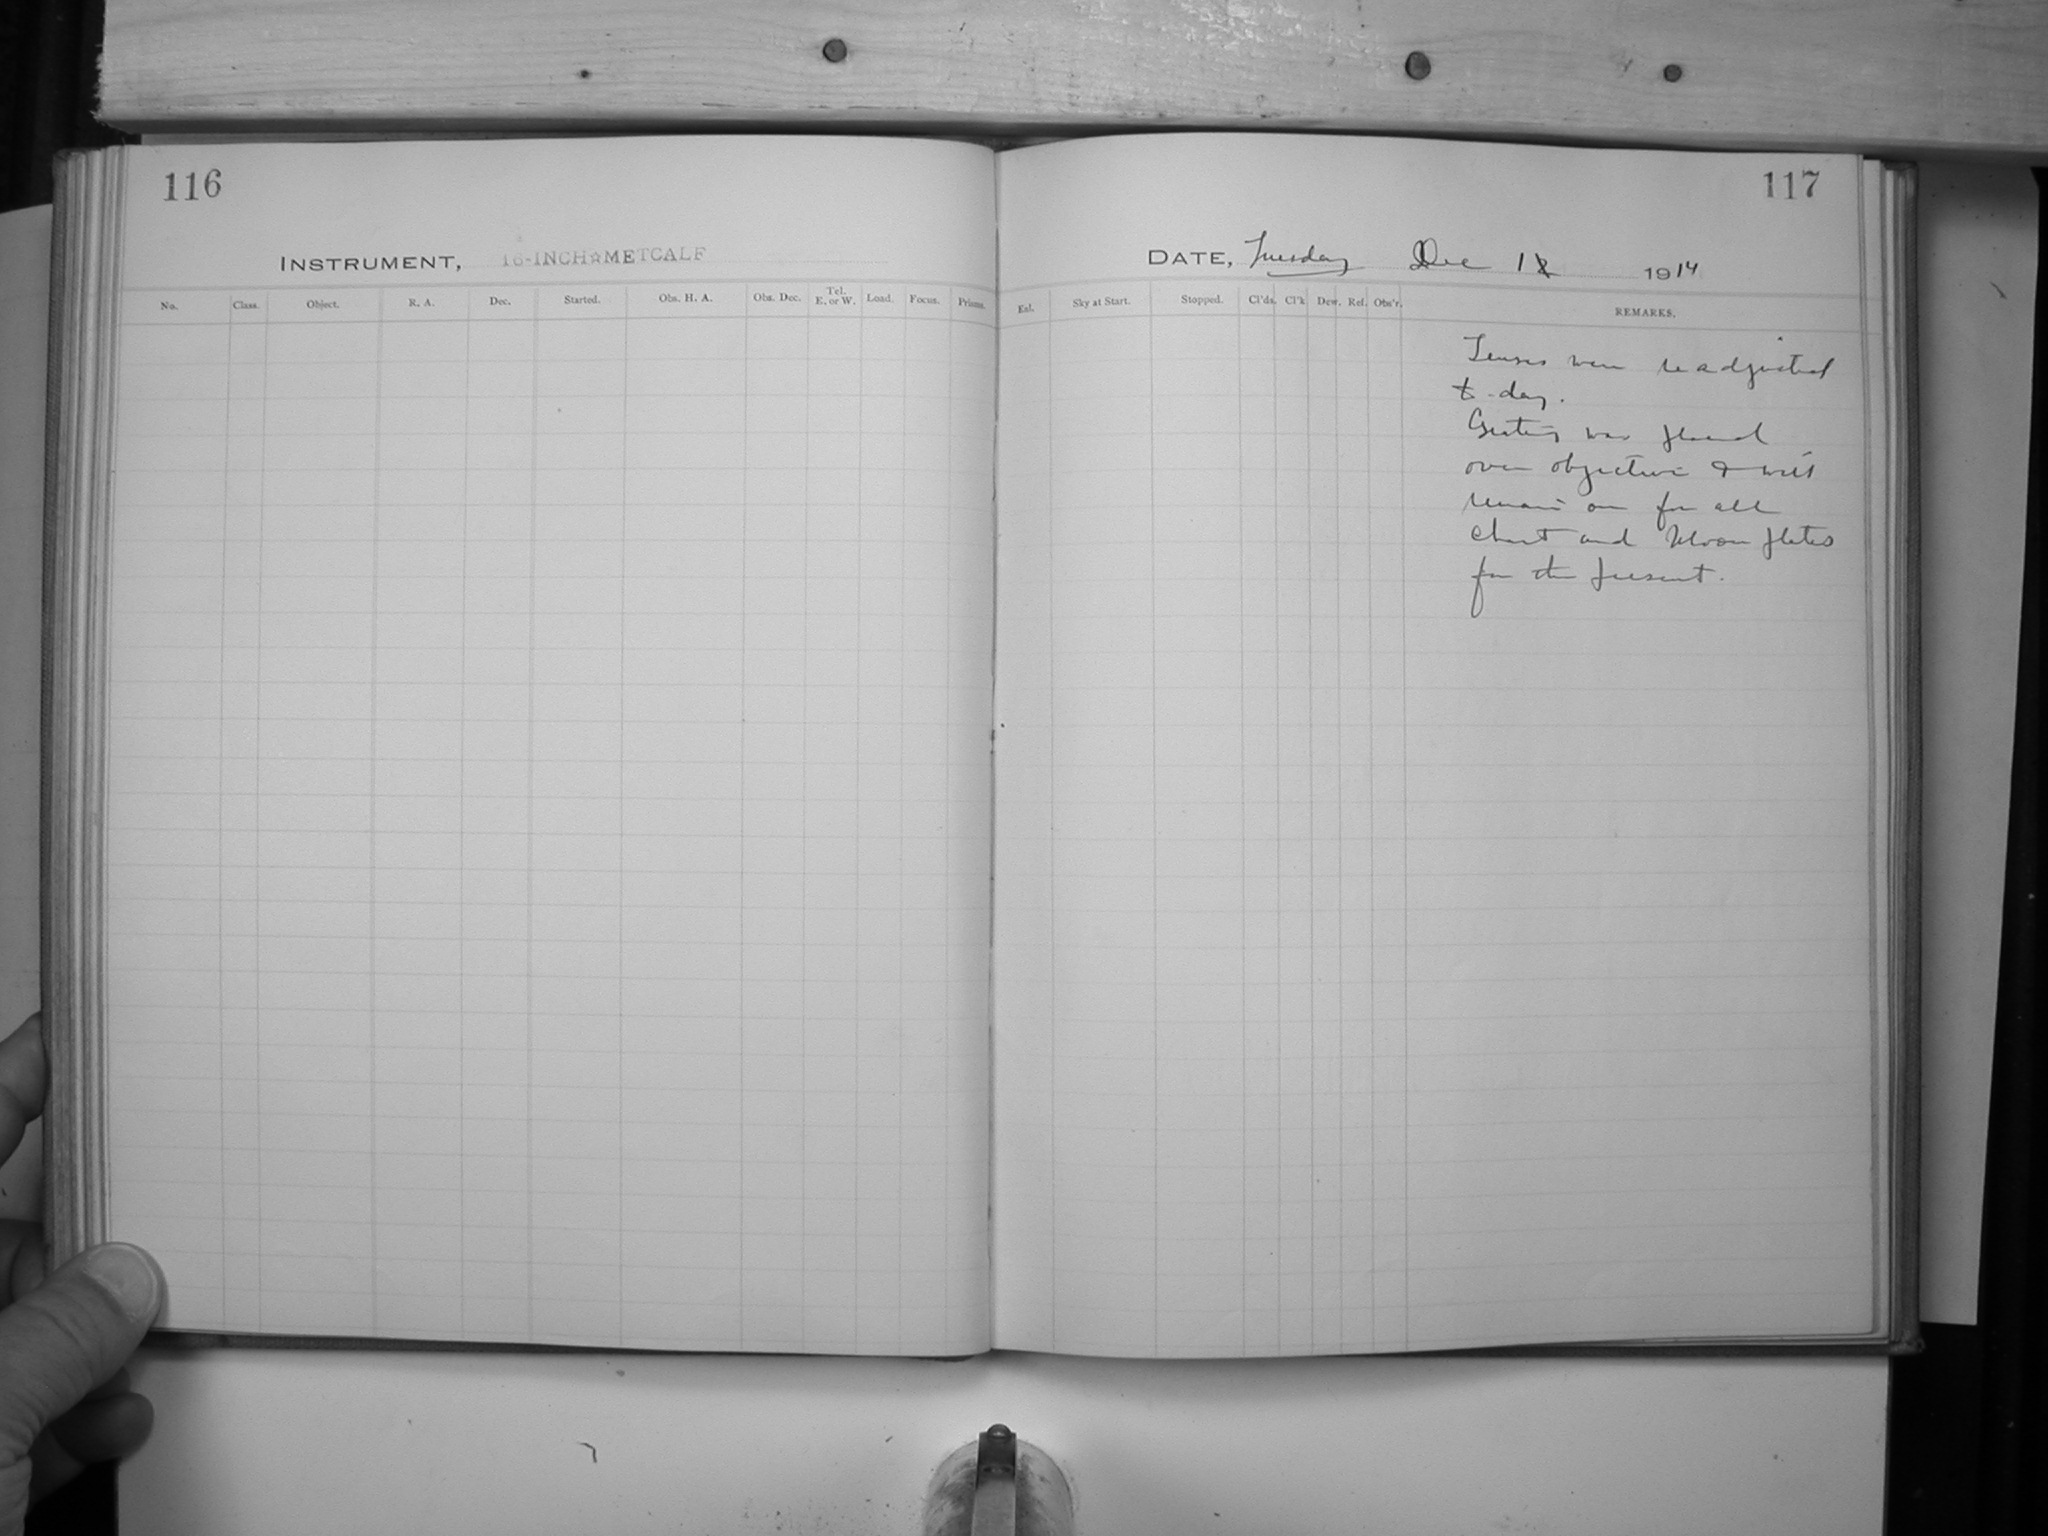 116
INSTRUMENT, 16-INCH☆METCALF
No. Class. Object. R. A. Dec. Started. Obs. H. A. Obs. Dec. Tel. E. or W. Load. Focus. Prisms.
117
DATE, Tuesday Dec 1914
Exl. Sky at Start. Stopped. Cl'ds. Cl'k Dew. Ref. Obs'r. REMARKS.
Lenses were readjusted
to-day.
Grating was placed
over objective & will
remain on for all
chart and Moon plates
for the present.